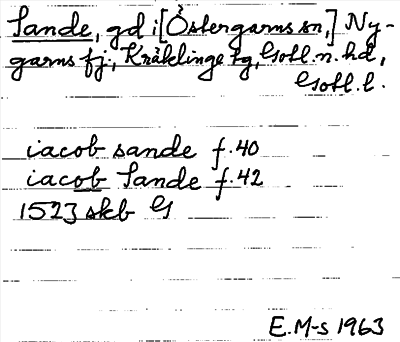 Sande, gd i [Östergarns sn,] Ny-
garns fj., Kräklinge tg, Gotl. n. hd,
Gotl. l.
iacob sande f. 40
iacob Sande f. 42
1523 skb G
E. M-s 1963